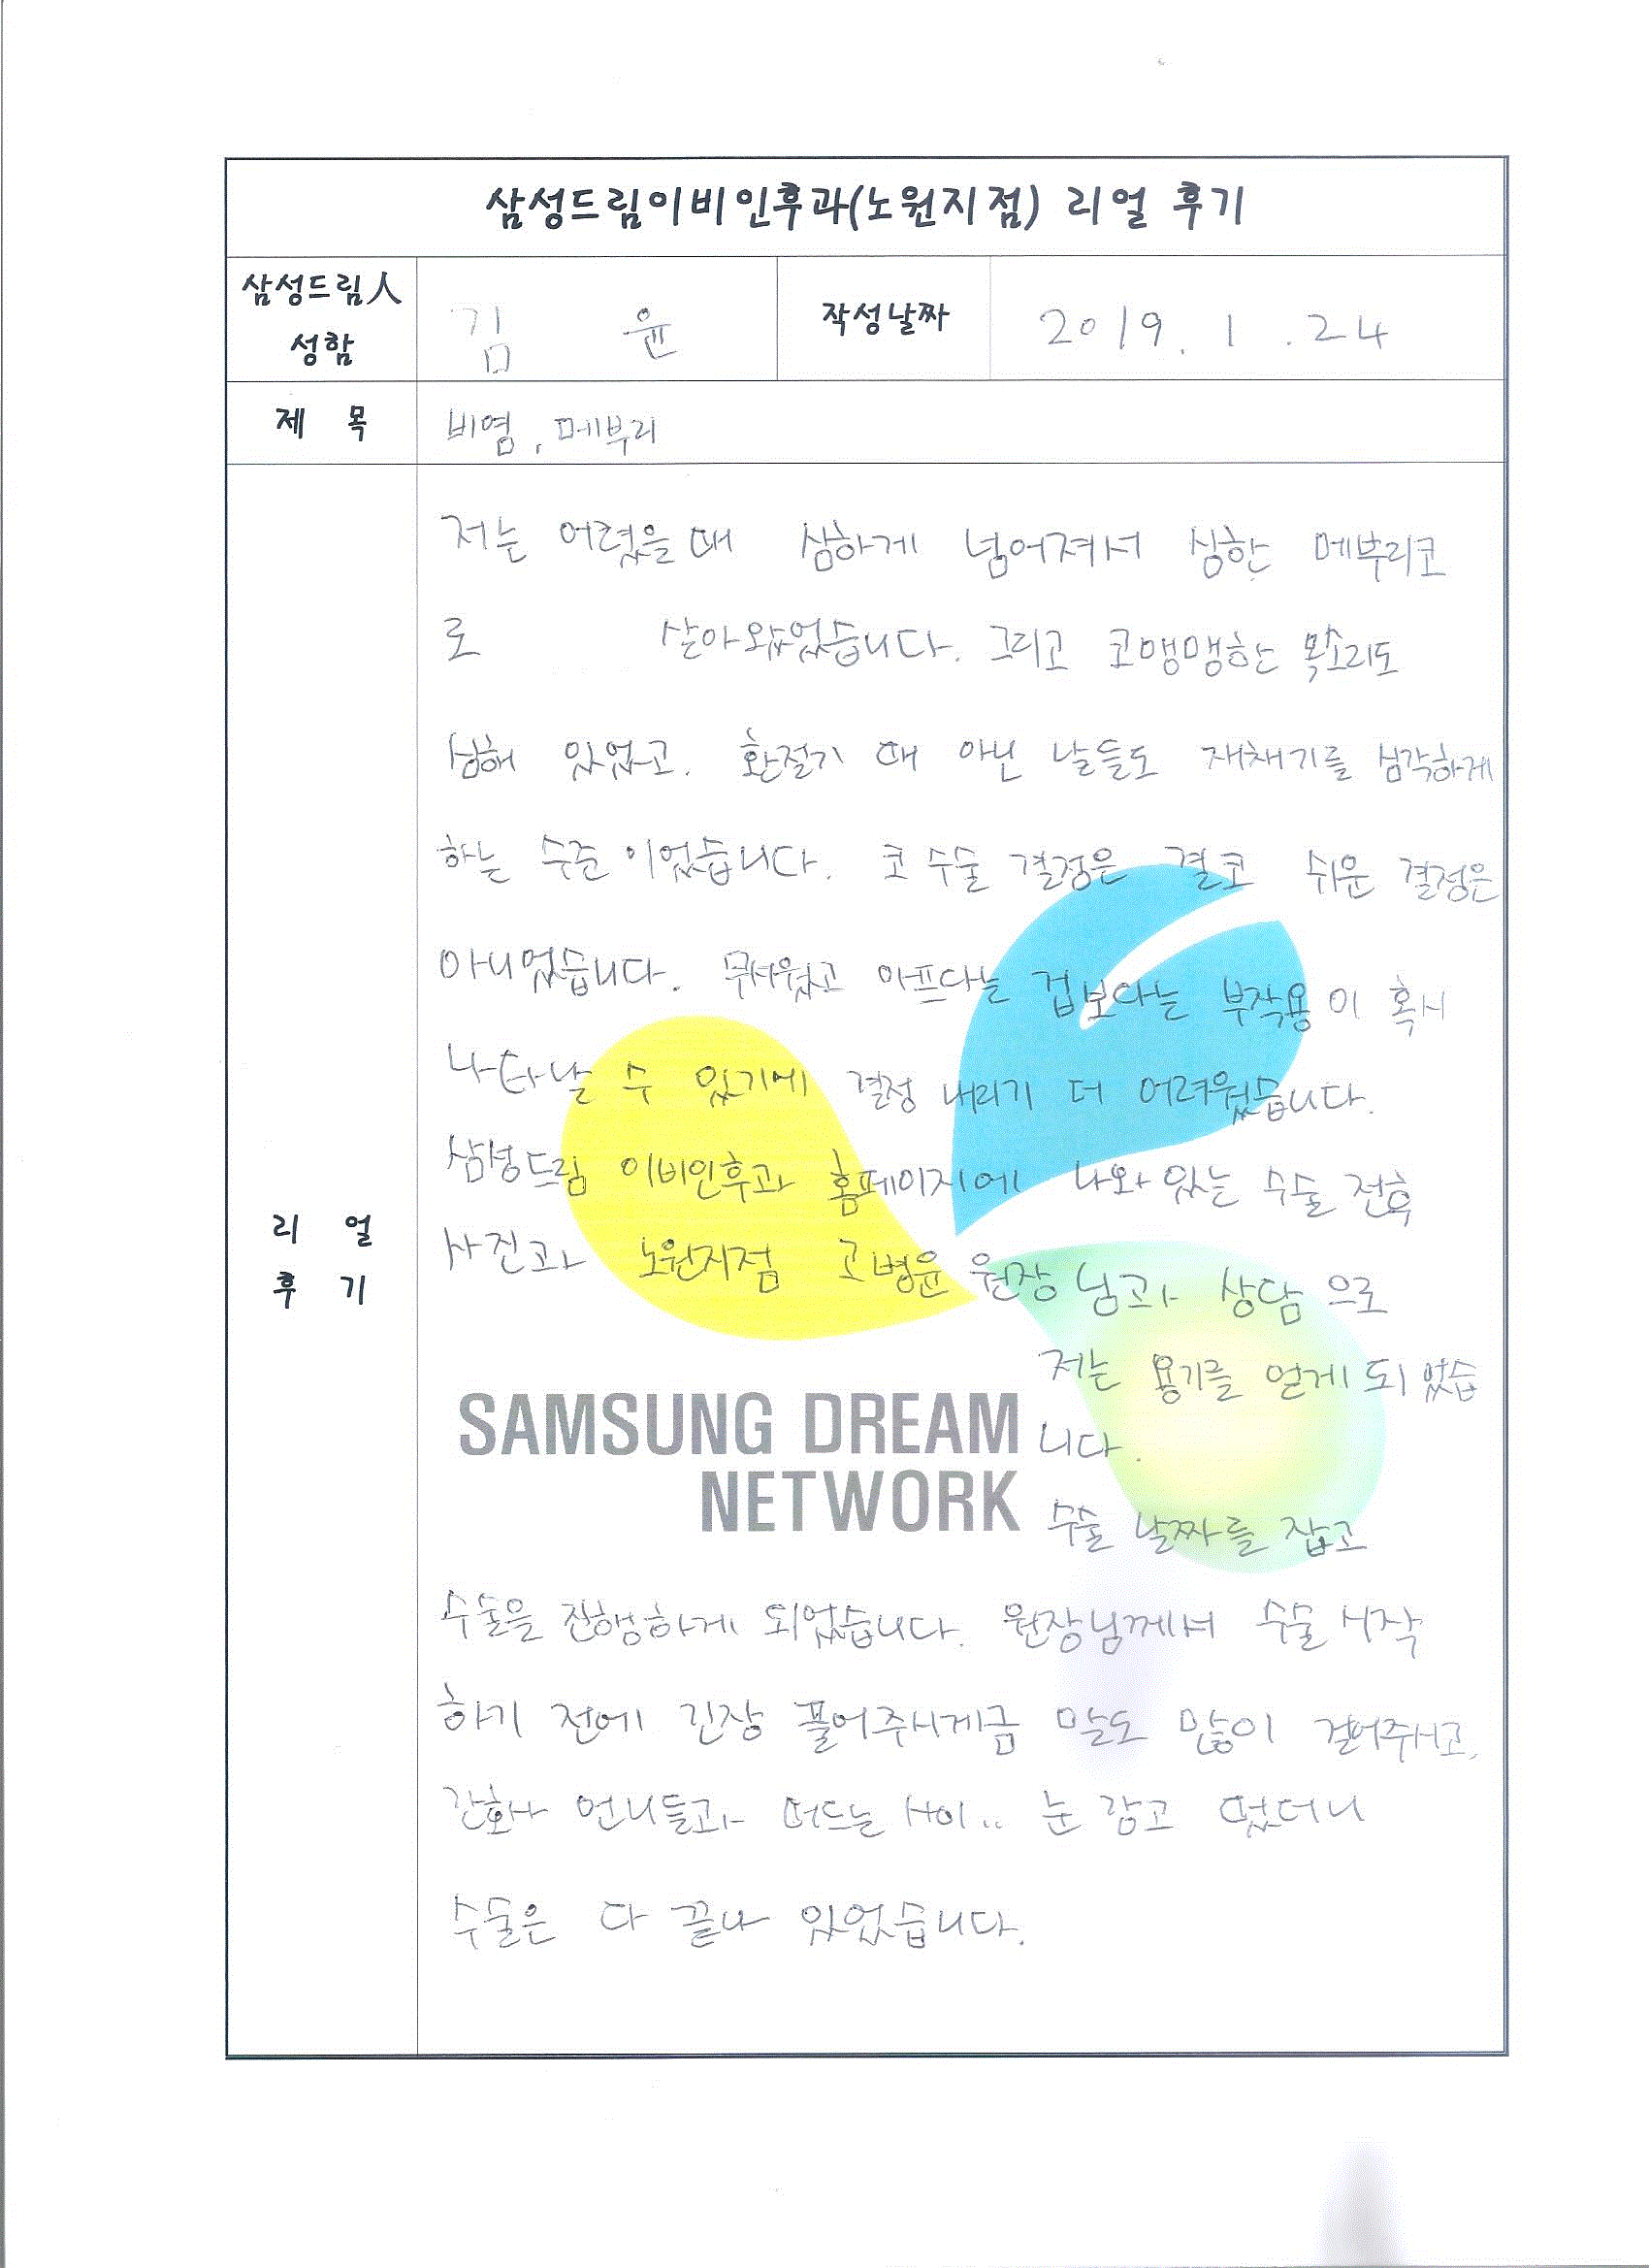 삼성드림이비인후과(노원지점) 리얼 후기
삼성드림人
성함
김 윤
작성날짜
2019. 1. 24
제 목
비염, 메부리
리 얼
후 기
저는 어렸을때 심하게 넘어져서 심한 메부리코
로 살아왔었습니다. 그리고 코맹맹한 목소리도
심해 있었고. 환절기 때 아닌 날들도 재채기를 심각하게
하는 수준이었습니다. 코 수술 결정은 결코 쉬운 결정은
아니었습니다. 무서웠고 아프다는 겁보다는 부작용이 혹시
나타날 수 있기에 결정 내리기 더 어려웠습니다.
삼성드림 이비인후과 홈페이지에 나와 있는 수술 전후
사진과 노원지점 고병윤 원장님과 상담으로
저는 용기를 얻게 되었습
니다.
SAMSUNG DREAM
NETWORK
수술 날짜를 잡고
수술을 진행하게 되었습니다. 원장님께서 수술 시작
하기 전에 긴장 풀어주시게금 말도 많이 걸어주시고,
간호사 언니들과 떠드는 사이.. 눈 감고 떴더니
수술은 다 끝나 있었습니다.